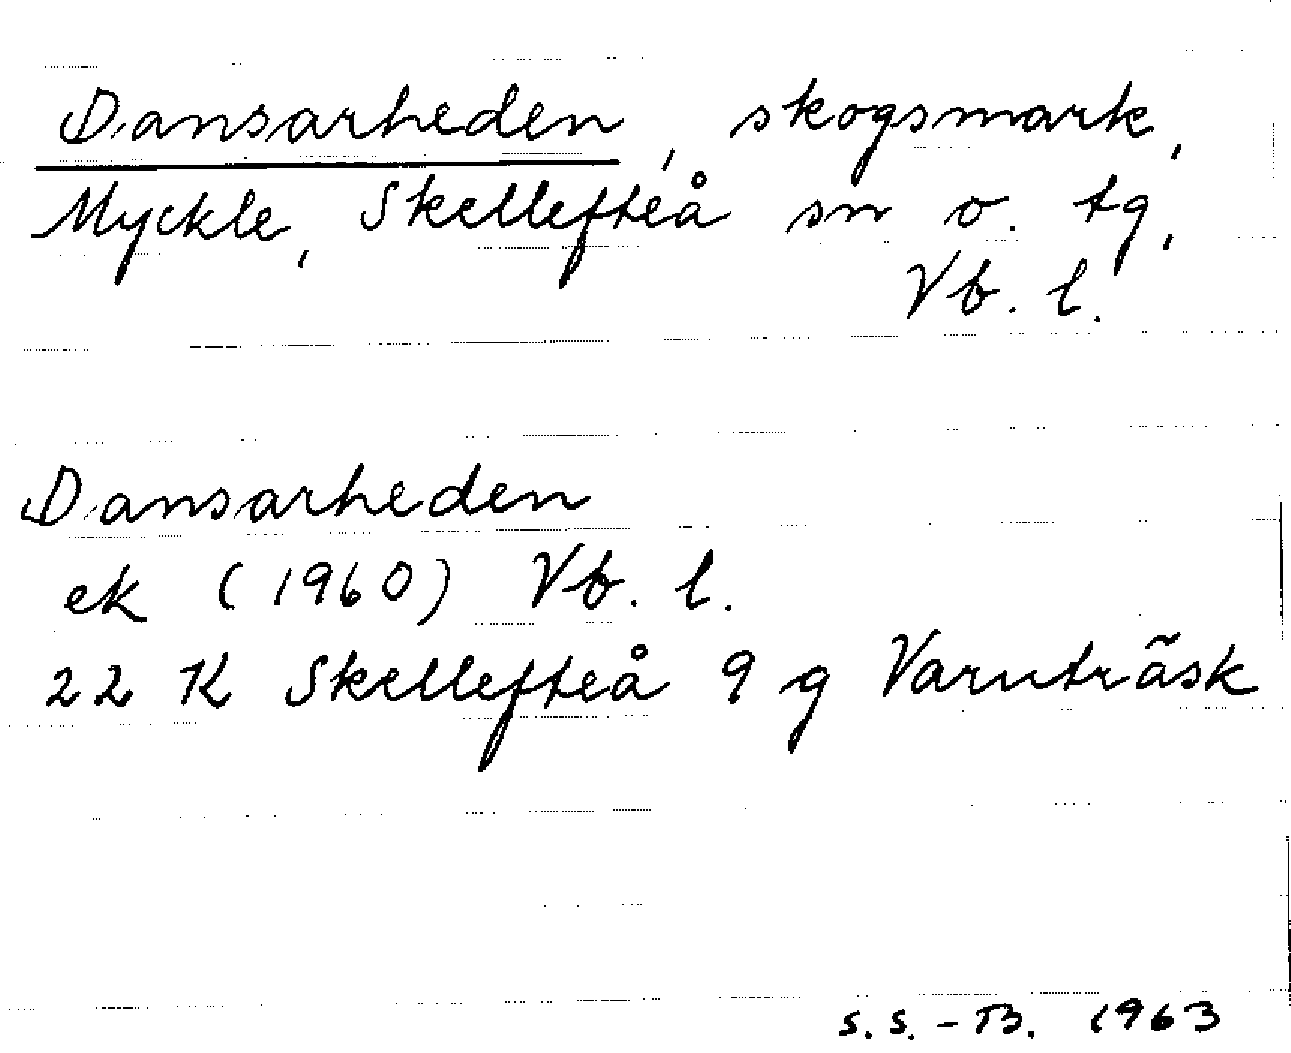 Dansarheden, skogsmark,
Myckle, Skellefteå sn o. tg,
Vb. l.
Dansarheden
ek (1960) Vb. l.
22 K Skellefteå 9 g Varuträsk
S.S.-B. 1963